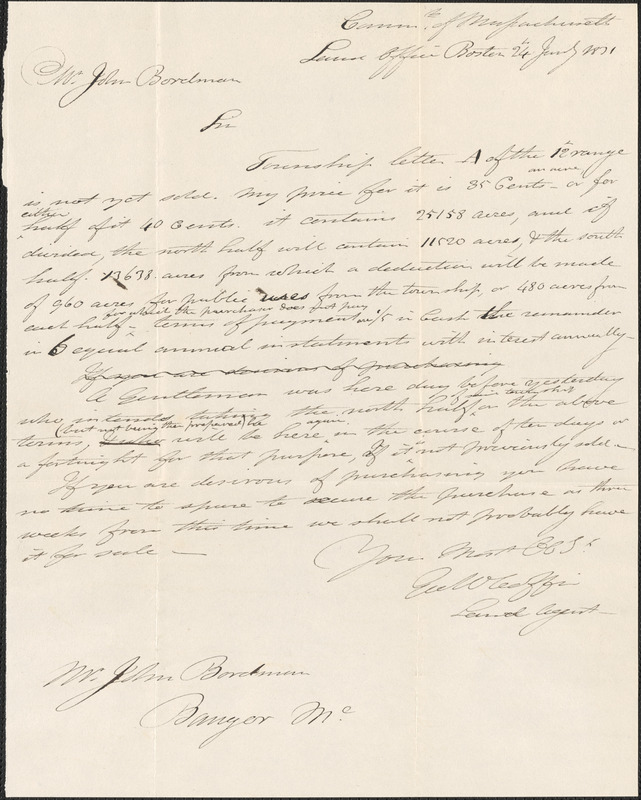 Commth of Massachusetts
Land Office Boston 24th Jany 1831
Mr John Bordman
Sir
Township letter A of the 12th range
is not yet sold. My price for it is 35 Cents an acre or for
either half of it 40 Cents. it contains 25158 acres, and if
divided, the north half will contain 11520 acres, & the south
half 13638 acres from which a deduction will be made
of 960 acres for public uses from the township or 480 acres from
each half for which the purchaser does not pay - terms of payment are 1/5 in Cash the remainder
in 6 equal annual instalments with interest annually -
If you are desirous of purchasing
A Gentleman was here day before yesterday
who intends taking the north half of said township on the above
terms, (but not being then prepared) he will be here again in the course of ten days or
a fortnight for that purpose, if it is not previously sold -
If you are desirous of purchasing you have
no time to spare to secure the purchase as three
weeks from this time we shall not probably have
it for sale -
Your Most Ob St
Geo W Coffin
Land Agent
Mr. John Bordman
Bangor Me